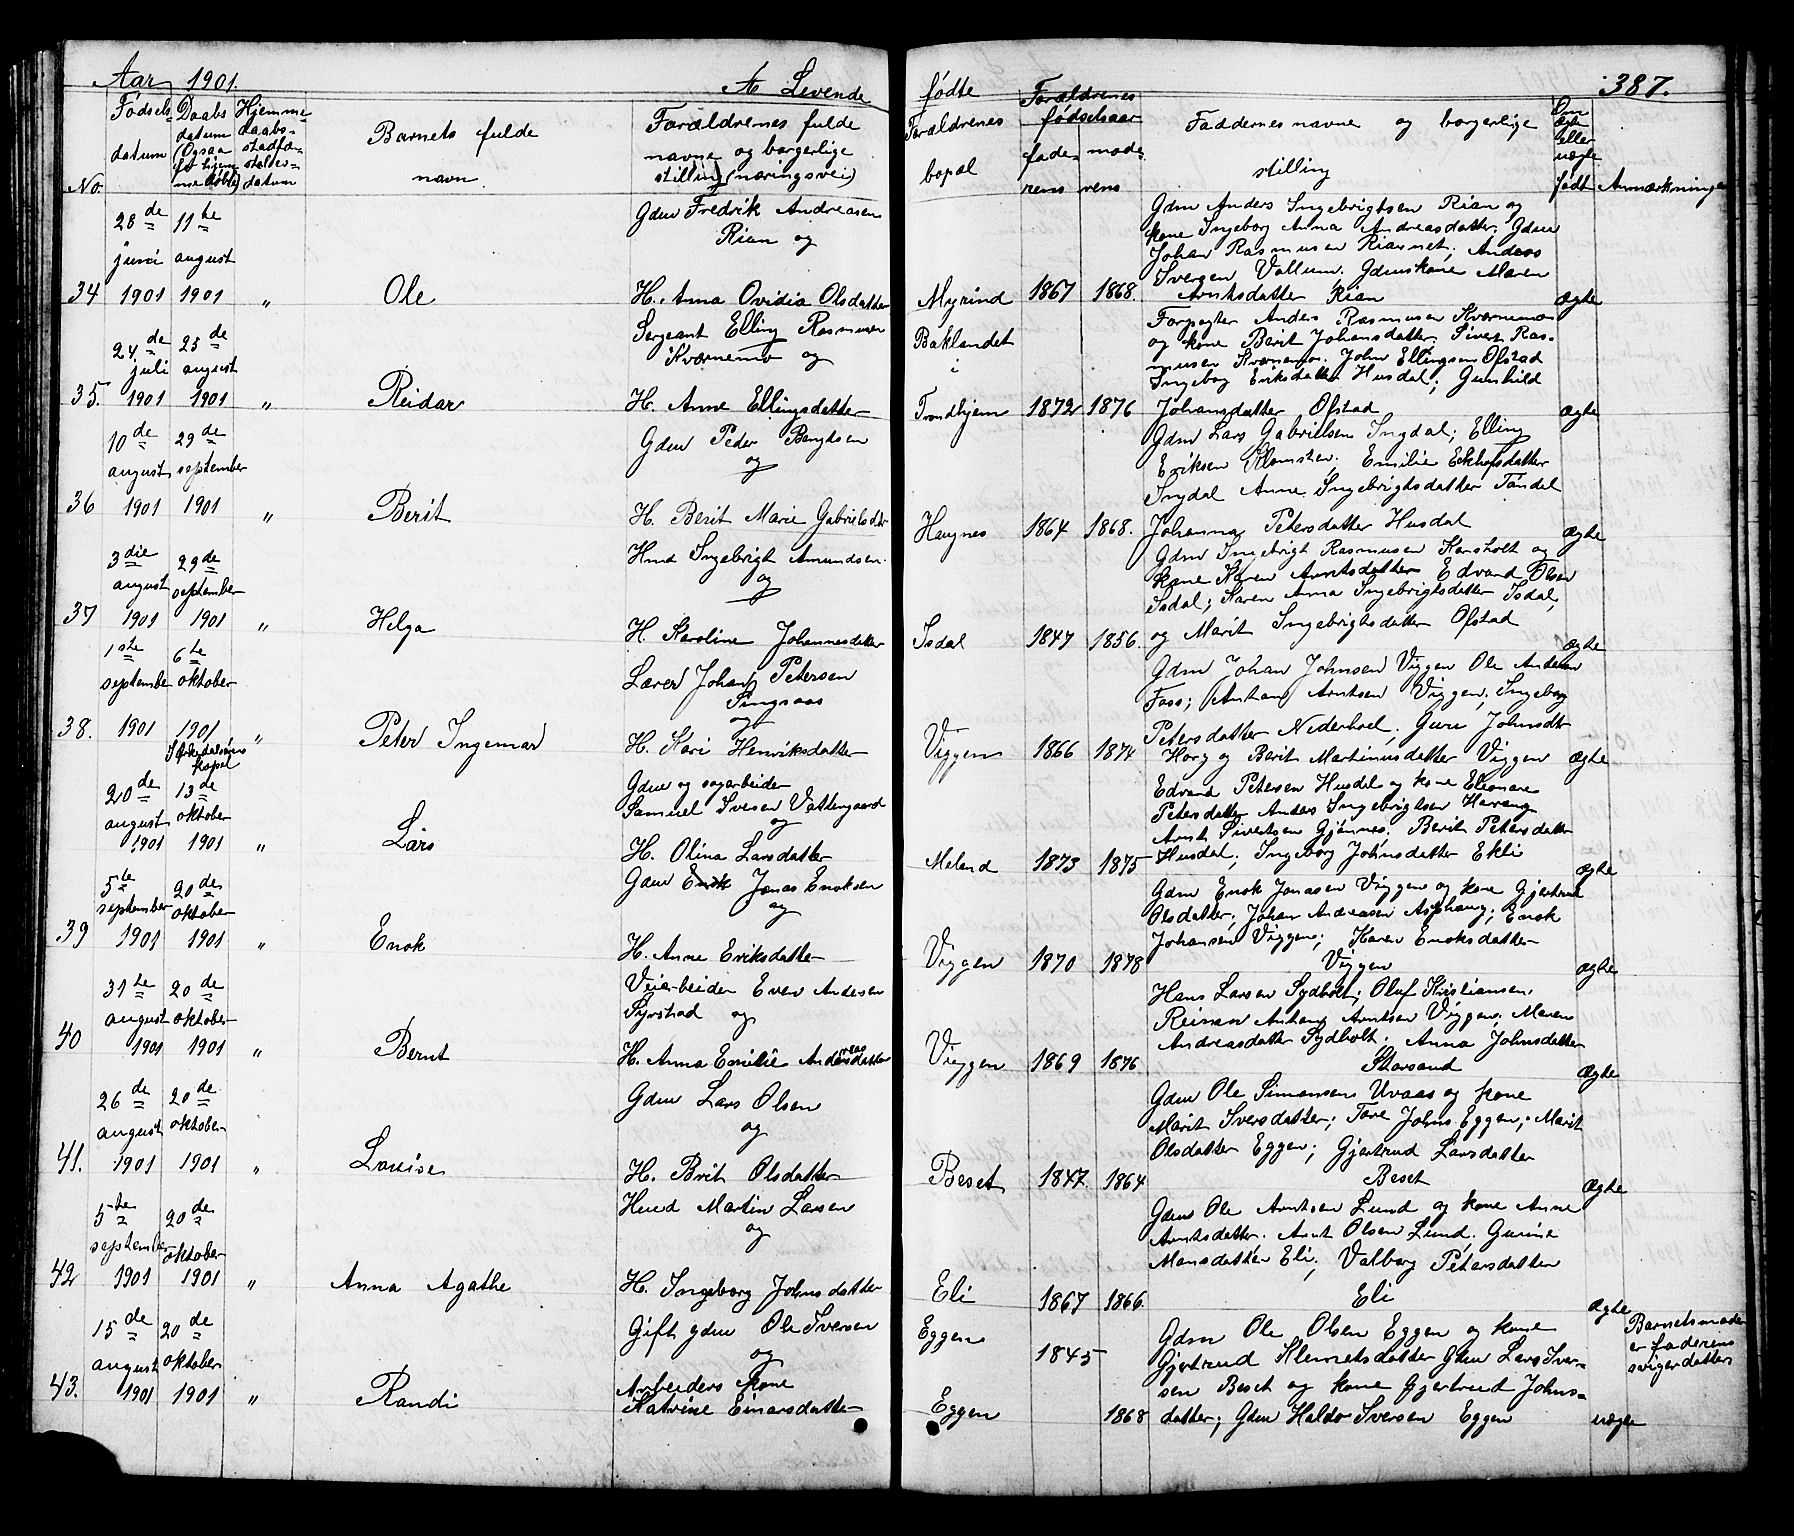 Aar 1901.
A Levende
fødte
387.
No.
Fødsels datum
Daabs datum (Ogsaa for hjemmedøbte)
Hjemmedaabs stadfæstelses datum
Barnets fulde navn
Forældrenes fulde navne og borgerlige stilling (næringsvei)
Forældrenes bopæl
Forældrenes fødselsaar
faderens
moderens
Faddernes navne og borgerlige stilling
Om ægte eller uægte født
Anmærkninger
34 28de juni 1901
11te august 1901
"
Ole
Gdm Fredrik Andreasen
Rian og
H. Anna Ovidia Olsdatter
Myrind
1867 1868.
Gdm Anders Ingebrigtsen Rian og
kone Ingeborg Anna Andreasdatter. Gdm
Johan Rasmussen Riasnet, Anders
Iversen Vollum. Gdmskone Maren
Arntsdatter Rian
ægte
35. 24de juli 1901
25de august 1901
"
Reidar
Sergeant Elling Rasmusen
Kværnemo og
H. Anne Ellingsdatter
Baklandet
i
Trondhjem
1872 1876
Forpagter Anders Rasmusen Kværnemo
og kone Berit Johansdatter. Siver Ras-
musen Kværnemo. John Ellingsen Ofstad
Ingebog Eriksdatter Husdal; Gunhild
Johansdatter Ofstad
ægte
36 10de august 1901
29de september 1901
"
Berit
Gdm Peder Bengtsen
og
H. Berit Marie Gabrielsdtr
Haugnes
1864 1868.
Gdm Lars Gabrielsen Ingdal; Elling
Eriksen Emilie
Ingdal Anne Ingebrigtsdatter Tøndel
Johanna Petersdatter Husdal
ægte
37 3die august 1901
29de september 1901
"
Helga
Hmd Ingebrigt Amundsen
og
H. Karoline Johannesdatter
Isdal
1847 1856.
Gdm Ingebrigt Rasmusen Korsholt og
kone Karen Arntsdatter Edvard Olsen
Isdal; Karen Anna Ingebrigtsdatter Isdal,
og Marit Ingebrigtsdatter Ofstad
ægte
38. 1ste september 1901
6te oktober 1901
"
Peter Ingemar
Lærer Johan Petersen
Singsaas
og
H. Kari Henriksdatter
Viggen
1866 1874
Gdm Johan Johnsen Viggen Ole Andersen
Foss; Anthon Arntsen Viggen; Ingeborg
Petersdatter Nederhoel, Guru Johnsdtr
Horg og Berit Martinusdatter Viggen
ægte
20de august 1901
kapel
13de oktober 1901
"
Lars
Gdm og sagarbeider
Samuel Iversen Vattengaard
og
H. Olina Larsdatter
Meland
1873 1875
Edvard Petersen Husdal og kone Eleonora
Petersdatter Anders Ingebrigtsen Haraug
Arnt Sivertsen Gjønnes. Berit Petersdatter
Husdal; Ingeborg Johnsdatter Ekli
ægte
39 5te september 1901
20de oktober 1901
"
Enok
Gdm Jonas Enoksen
og
H. Anne Eriksdatter
Viggen
1870 1878
Gdm Enok Jonasen Viggen og kone Gjertrud
Olsdatter; Johan Andreasen Asphaug; Enok
Johansen Viggen; Karen Enoksdatter
Viggen
ægte
40 31te august 1901
20de oktober 1901
"
Bernt
Veiarbeider Even Andersen
Syrstad og
H. Anna Emilie Andreasdatter
Viggen
1869 1876
Hans Larsen Sydholt; Oluf Kristiansen
Reinan Anthon Arntsen Viggen; Maren
Andreasdatter Sydholt; Anna Johnsdatter
Storsand
ægte
41. 26de august 1901
20de oktober 1901
"
Louise
Gdm Lars Olsen
og
H. Brit Olsdatter
Beset
1847 1864
Gdm Ole Simonsen Uvaas og kone
Marit Iversdatter; Tore Johns Eggen; Marit
Olsdatter Eggen; Gjertrud Larsdatter
Beset
ægte
42 5te september 1901
20de oktober 1901
"
Anna Agathe
Hmd Martin Larsen
og
H. Ingeborg Johnsdatter
Eli
1867 1866.
Gdm Ole Arntsen Lund og kone Anne
Arntsdatter. Arnt Olsen Lund. Gurine
Monsdatter Eli; Valborg Petersdatter
Eli
ægte
43. 15de august 1901
20de oktober 1901
"
Randi
Gift gdm Ole Iversen
og
Arbeiders kone
Katrine Einarsdatter
Eggen
Eggen
1845
1868
Gdm Ole Olsen Eggen og kone
Gjertrud Klemetsdatter Gdm Lars Iver-
sen Beset og kone Gjertrud Johns-
datter; Gdm Haldo Iversen Eggen
uægte
Barnets moder
er faderens
svigerdatter